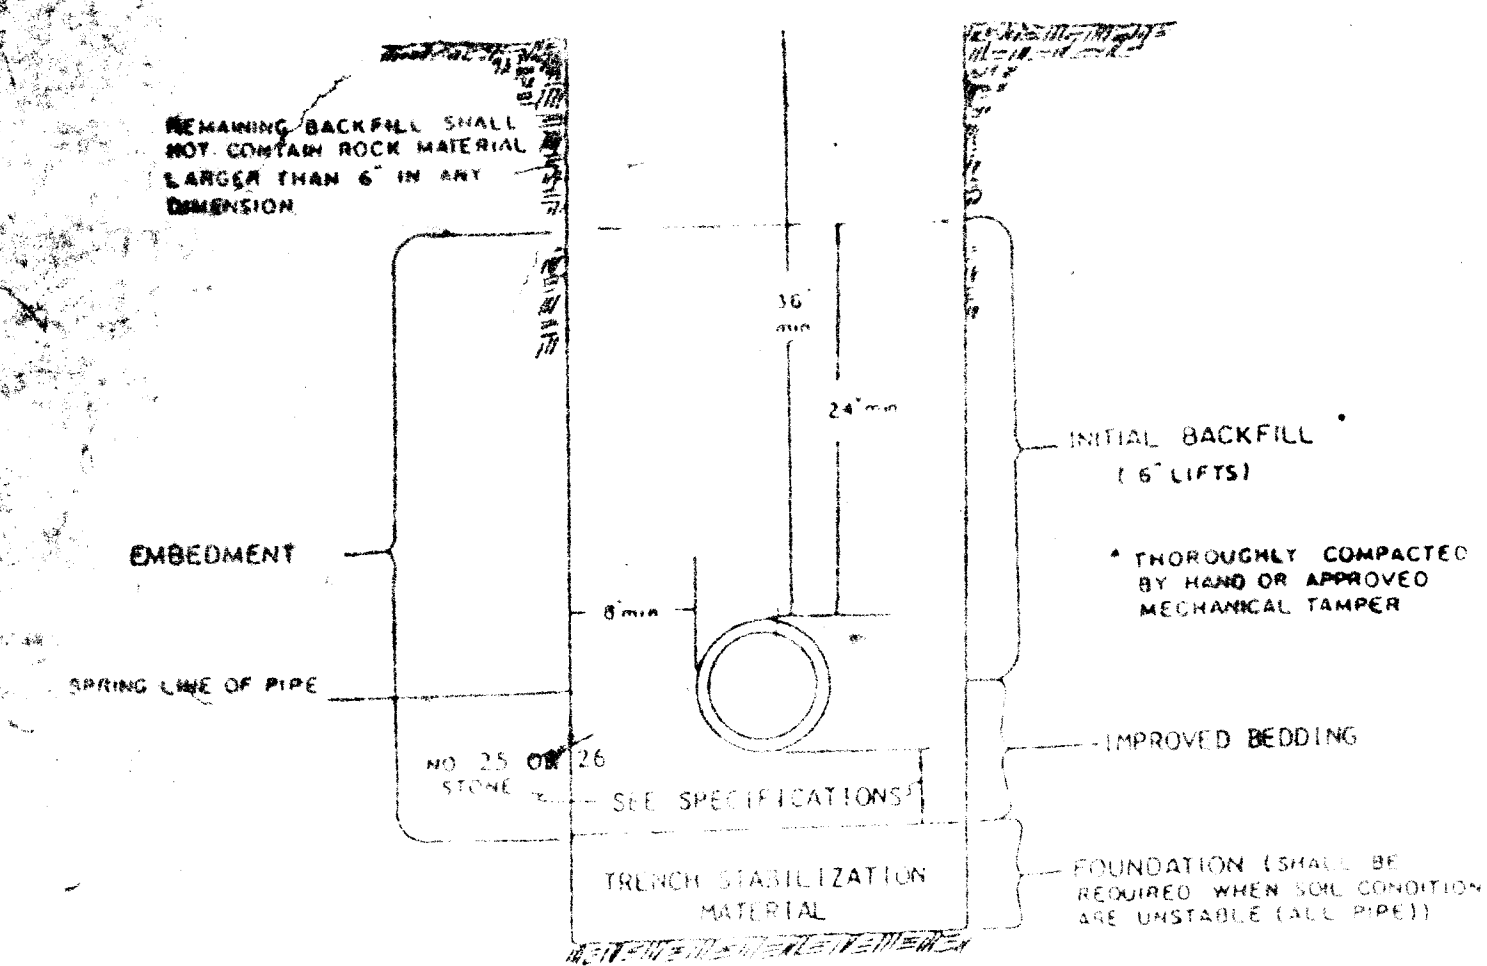 REMAINING BACKFILL SHALL
NOT CONTAIN ROCK MATERIAL
LARGER THAN 6" IN ANY
DIMENSION
36"
min
24" min
INITIAL BACKFILL *
( 6" LIFTS )
EMBEDMENT
* THOROUGHLY COMPACTED
BY HAND OR APPROVED
MECHANICAL TAMPER
8" min
SPRING LINE OF PIPE
IMPROVED BEDDING
NO 25 OR 26
STONE
SEE SPECIFICATIONS
TRENCH STABILIZATION
MATERIAL
FOUNDATION (SHALL BE
REQUIRED WHEN SOIL CONDITION
ARE UNSTABLE (ALL PIPE))